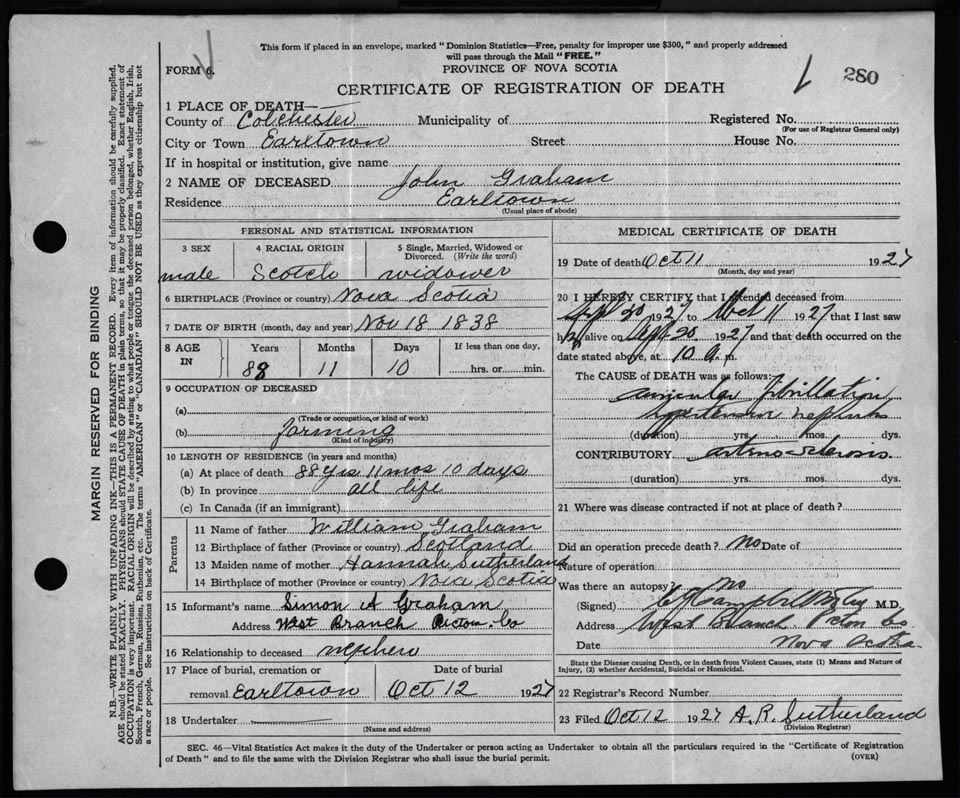 This form if placed in an envelope, marked "Dominion Statistics—Free, penalty for improper use $300," and properly addressed
will pass through the Mail "FREE."
FORM 6.
PROVINCE OF NOVA SCOTIA
280
CERTIFICATE OF REGISTRATION OF DEATH
1 PLACE OF DEATH—
County of Colchester Municipality of Registered No.
(For use of Registrar General only)
City or Town Earltown Street House No.
If in hospital or institution, give name
2 NAME OF DECEASED John Graham
Residence Earltown
(Usual place of abode)
PERSONAL AND STATISTICAL INFORMATION
3 SEX
male
4 RACIAL ORIGIN
Scotch
5 Single, Married, Widowed or
Divorced. (Write the word)
widower
6 BIRTHPLACE (Province or country) Nova Scotia
7 DATE OF BIRTH (month, day and year) Nov 18 1838
8 AGE IN
Years Months Days If less than one day,
88 11 10 hrs. or min.
9 OCCUPATION OF DECEASED
(a)
(Trade or occupation, or kind of work)
(b) farming
(Kind of industry)
10 LENGTH OF RESIDENCE (in years and months)
(a) At place of death 88 yrs 11 mos 10 days
(b) In province all life
(c) In Canada (if an immigrant)
Parents
11 Name of father William Graham
12 Birthplace of father (Province or country) Scotland
13 Maiden name of mother Hannah Sutherland
14 Birthplace of mother (Province or country) Nova Scotia
15 Informant's name Simon A Graham
Address West Branch Pictou Co
16 Relationship to deceased nephew
17 Place of burial, cremation or Date of burial
removal Earltown Oct 12 1927
18 Undertaker
(Name and address)
MEDICAL CERTIFICATE OF DEATH
19 Date of death Oct 11 1927
(Month, day and year)
20 I HEREBY CERTIFY that I attended deceased from
Sept 20 1927 to Oct 11 1927 that I last saw
h alive on Sept 20 1927 and that death occurred on the
date stated above, at 10 a. m.
The CAUSE of DEATH was as follows:
auricular fibrillation
(duration) yrs. mos. dys.
CONTRIBUTORY arterio-sclerosis
(duration) yrs. mos. dys.
21 Where was disease contracted if not at place of death?
Did an operation precede death? no Date of
Nature of operation
Was there an autopsy? no
(Signed) M.D.
Address West Branch Pictou Co.
Date Nova Scotia
State the Disease causing Death, or in death from Violent Causes, state (1) Means and Nature of
Injury, (2) whether Accidental, Suicidal or Homicidal.
22 Registrar's Record Number
23 Filed Oct 12 1927 A. R. Sutherland
(Division Registrar)
SEC. 46—Vital Statistics Act makes it the duty of the Undertaker or person acting as Undertaker to obtain all the particulars required in the "Certificate of Registration
of Death" and to file the same with the Division Registrar who shall issue the burial permit.
(OVER)
MARGIN RESERVED FOR BINDING
N.B.—WRITE PLAINLY WITH UNFADING INK—THIS IS A PERMANENT RECORD. Every item of information should be carefully supplied.
AGE should be stated EXACTLY. PHYSICIANS should STATE CAUSE OF DEATH in plain terms, so that it may be properly classified. Exact statement of
OCCUPATION is very important. RACIAL ORIGIN will be described by stating to what people or tongue the deceased person belonged, whether English, Irish,
Scotch, French, German, Russian, Ruthenian, etc. The terms "AMERICAN" or "CANADIAN" SHOULD NOT BE USED as they express citizenship but not
a race or people. See instructions on back of Certificate.